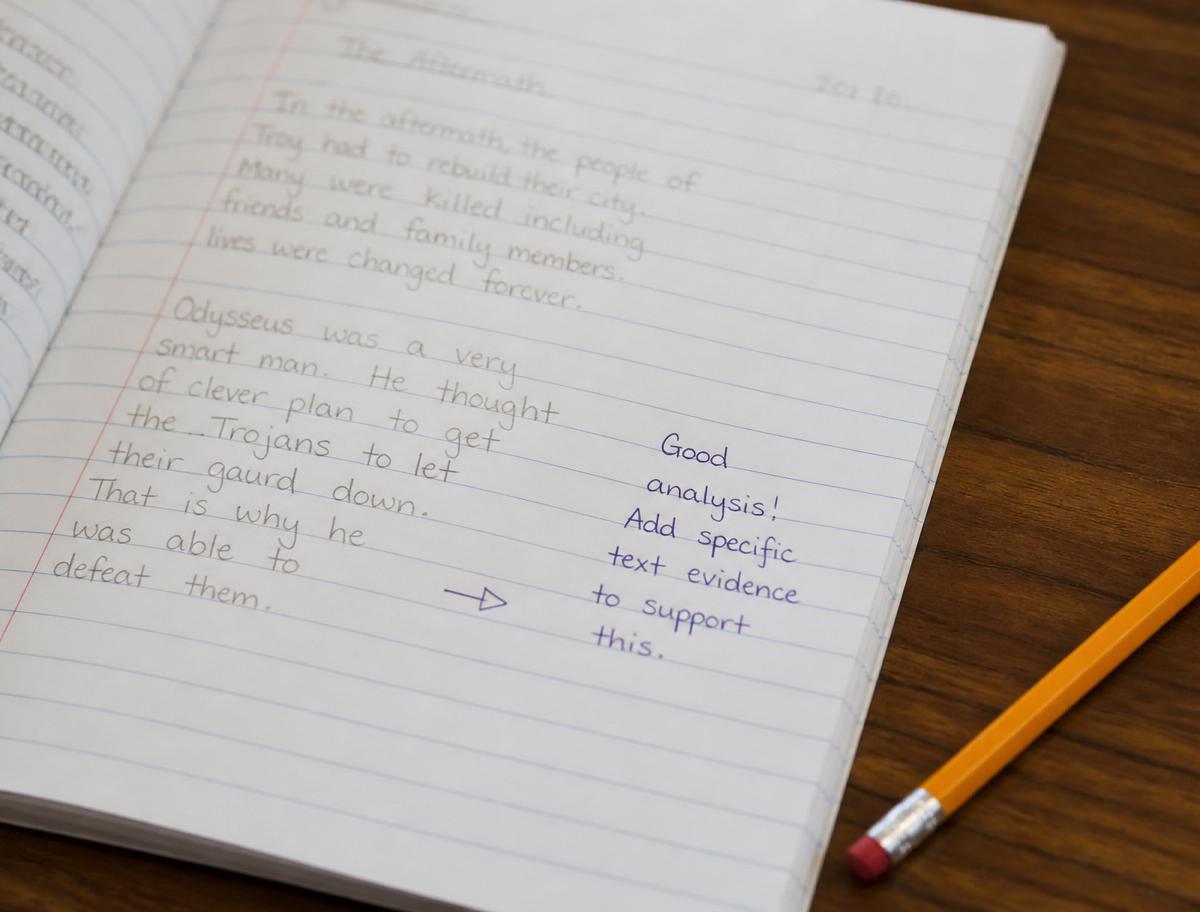 The Aftermath
In the aftermath, the people of
Troy had to rebuild their city.
Many were killed including
friends and family members.
lives were changed forever.
Odysseus was a very
smart man. He thought
of clever plan to get
the Trojans to let
their gaurd down.
That is why he
was able to
defeat them.
Good
analysis!
Add specific
text evidence
to support
this.